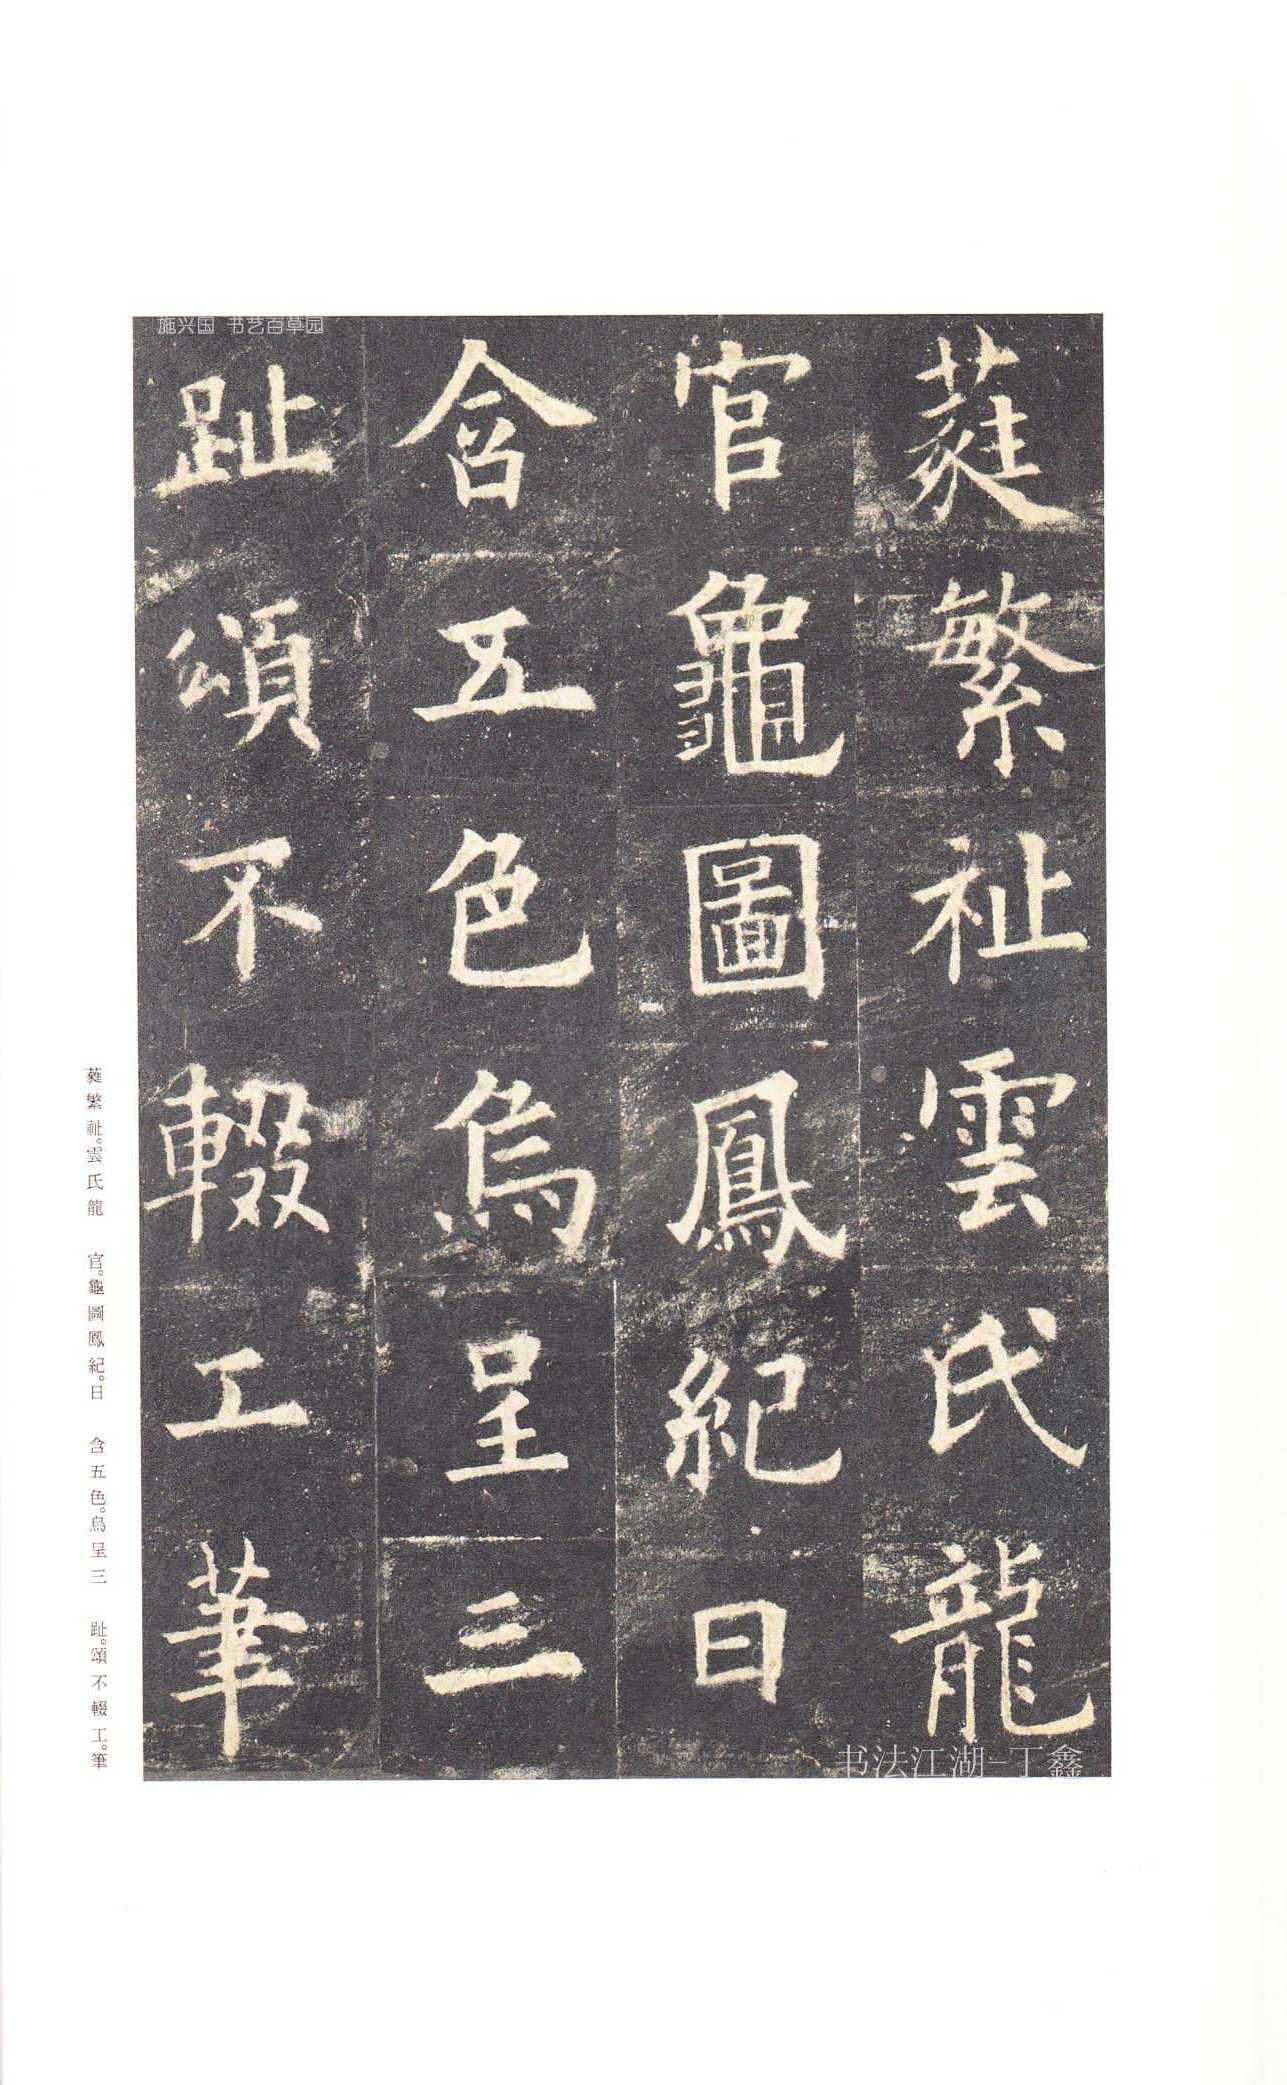 施兴国 书艺百草园
蕤繁祉雲氏龍
官龜圖鳳紀日
含五色烏呈三
趾頌不輟工筆
书法江湖-丁鑫
蕤繁祉。雲氏龍 官。龜圖鳳紀。日 含五色。烏呈三 趾。頌不輟工。筆